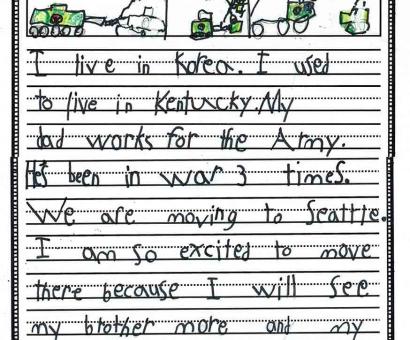 I live in Korea. I used
to live in Kentucky. My
dad works for the Army.
He's been in war 3 times.
We are moving to Seattle.
I am so excited to move
there because I will see
my brother more and my